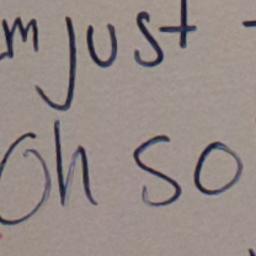 m just
Oh so